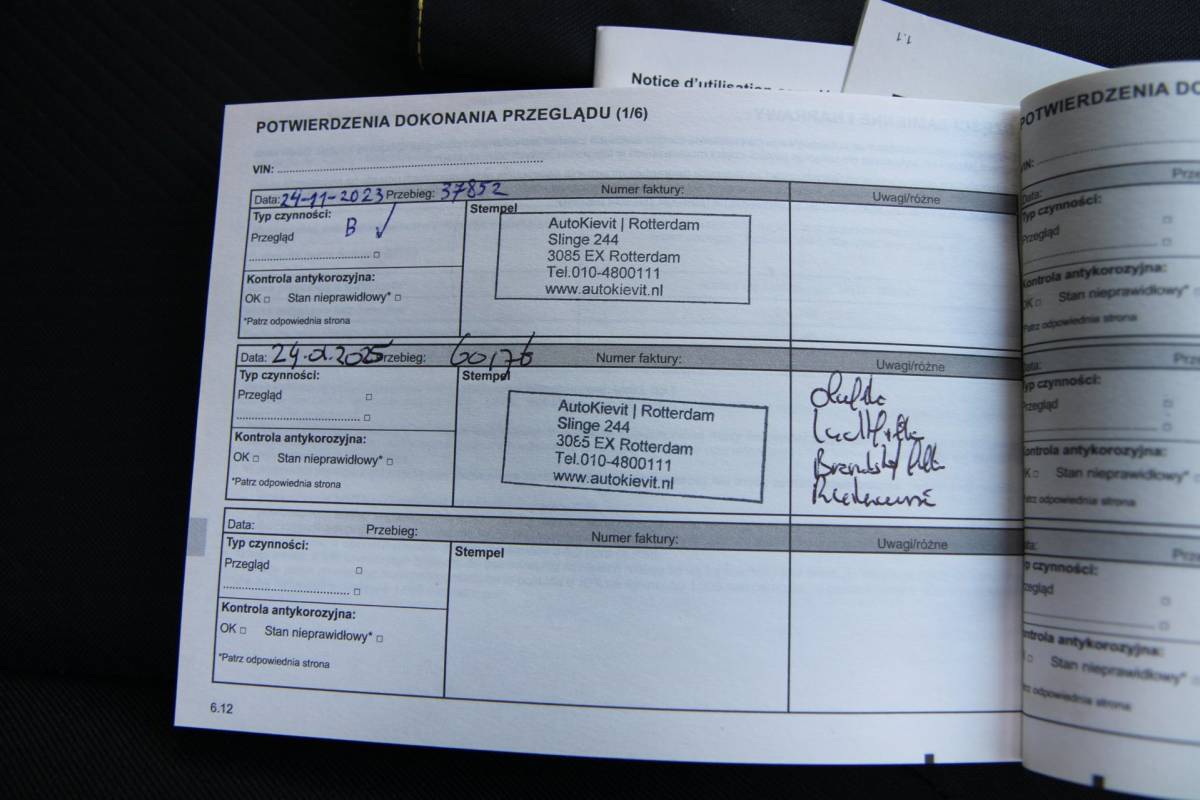 1.1
Notice d'utilisation
POTWIERDZENIA DOKONANIA PRZEGLĄDU (1/6)
VIN:
Data: 24-11-2023 Przebieg: 37852 Numer faktury: Uwagi/różne
Typ czynności: Stempel
Przegląd B ✓
Kontrola antykorozyjna:
OK □ Stan nieprawidłowy* □
*Patrz odpowiednia strona
AutoKievit | Rotterdam
Slinge 244
3085 EX Rotterdam
Tel.010-4800111
www.autokievit.nl
Data: 24-01-2025 Przebieg: 60,176 Numer faktury: Uwagi/różne
Typ czynności: Stempel
Przegląd □
Kontrola antykorozyjna:
OK □ Stan nieprawidłowy* □
*Patrz odpowiednia strona
AutoKievit | Rotterdam
Slinge 244
3085 EX Rotterdam
Tel.010-4800111
www.autokievit.nl
Data: Przebieg: Numer faktury: Uwagi/różne
Typ czynności: Stempel
Przegląd □
Kontrola antykorozyjna:
OK □ Stan nieprawidłowy* □
*Patrz odpowiednia strona
6.12
POTWIERDZENIA
VIN:
Data:
Typ czynności:
Przegląd
Kontrola antykorozyjna:
OK □ Stan nieprawidłowy*
*Patrz odpowiednia strona
Typ czynności:
Stan nieprawidłowy*
odpowiednia strona
czynności:
Stan nieprawidłowy*
odpowiednia strona